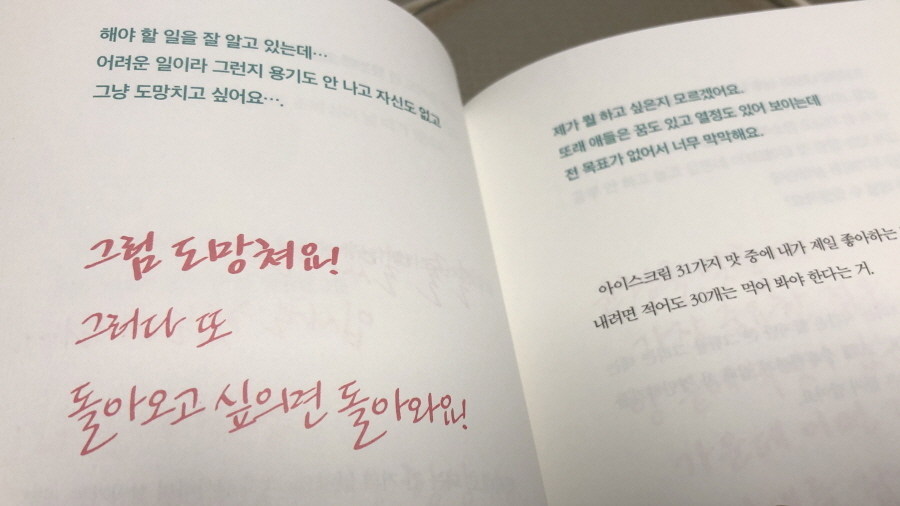 해야 할 일을 잘 알고 있는데…
어려운 일이라 그런지 용기도 안 나고 자신도 없고
그냥 도망치고 싶어요….
그럼 도망쳐요!
그러다 또
돌아오고 싶으면 돌아와요!
제가 뭘 하고 싶은지 모르겠어요.
또래 애들은 꿈도 있고 열정도 있어 보이는데
전 목표가 없어서 너무 막막해요.
아이스크림 31가지 맛 중에 내가 제일 좋아하는
내려면 적어도 30개는 먹어 봐야 한다는 거.